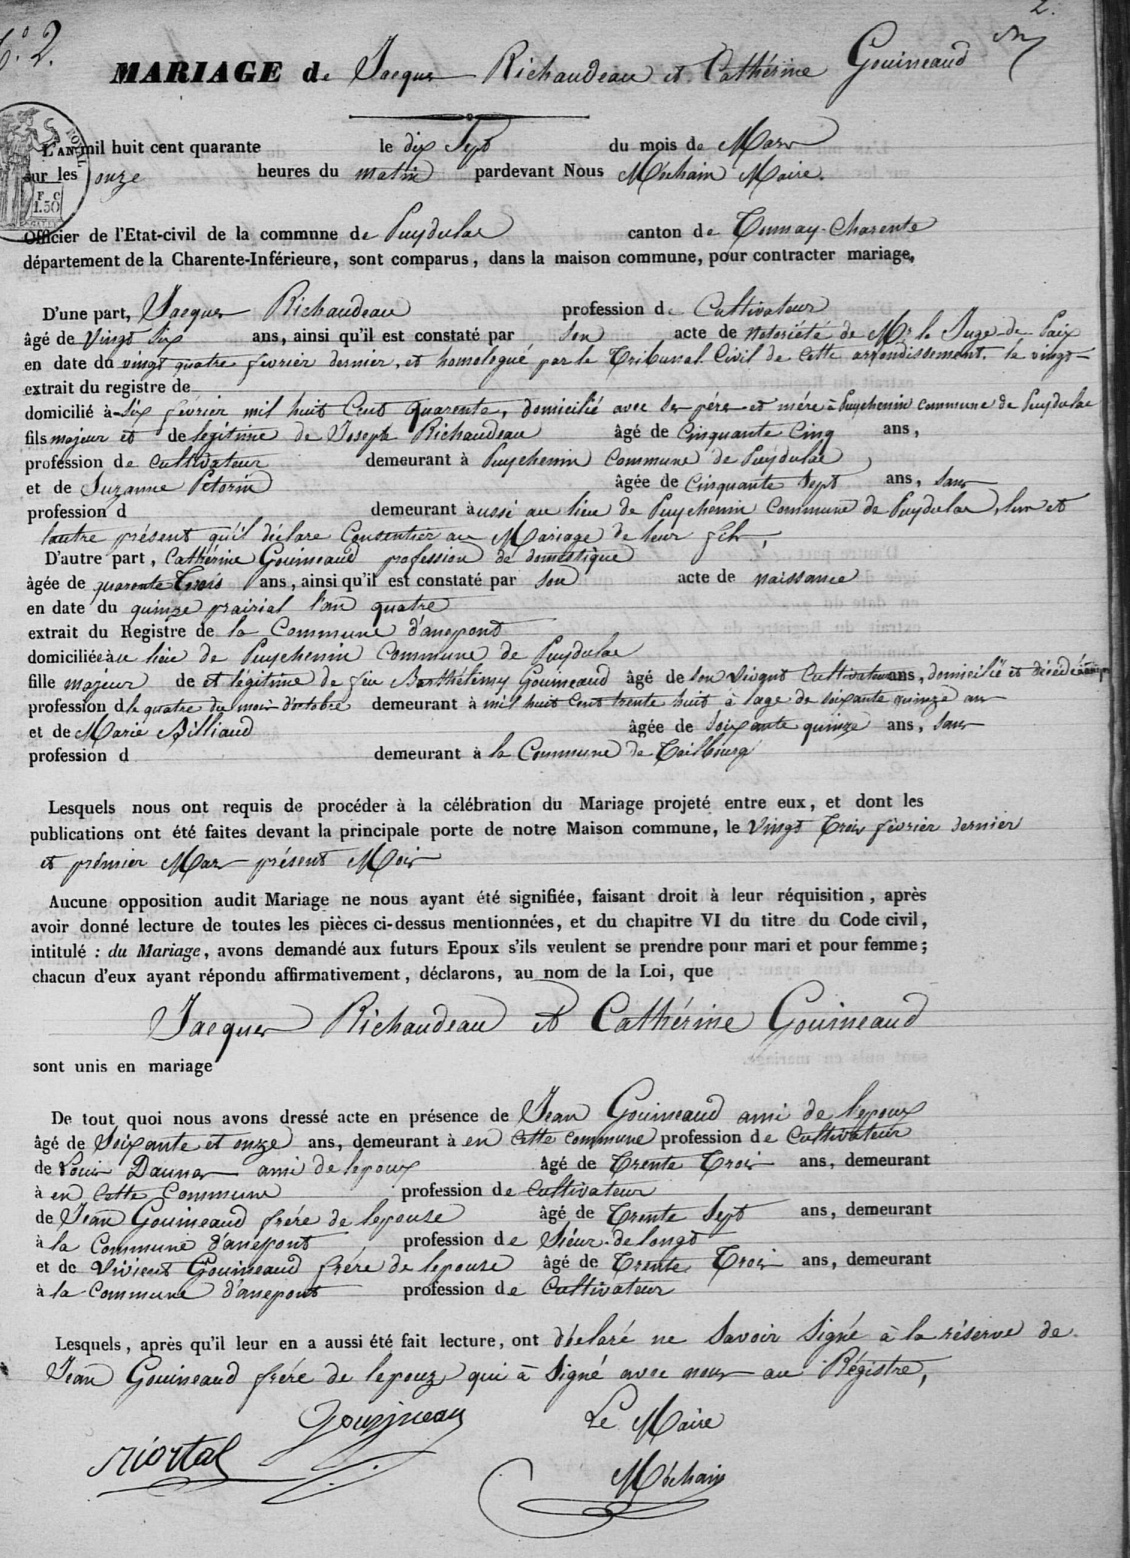 N.° 2.
2.
MARIAGE de Jacques Richaudeau et Cathérine Gouineaud
L'AN mil huit cent quarante le dix Sept du mois de Mars
sur les onze heures du matin pardevant Nous Méchain Maire.
Officier de l'Etat-civil de la commnne de Puydulac canton de Tonnay-Charente
département de la Charente-Inférieure, sont comparus, dans la maison commune, pour contracter mariage,
D'une part, Jacques Richaudeau profession de Cultivateur
âgé de Vingt Six ans, ainsi qu'il est constaté par son acte de notoriété de Mr le Juge de Paix
en date du vingt quatre fevrier dernier, et homologué par le Tribunal Civil de cette arrondissement. le vingt-
extrait du registre de
domicilié à - six février mil huit Cent quarente, domicilié avec ses pére et mére à Puychenin commune de Puydulac
fils majeur et de legitime de Joseph Richaudeau âgé de Cinquante Cinq ans,
profession de cultivateur demeurant à Puychenin Commune de Puydulac,
et de Suzanne Petorin âgée de Cinquante Sept ans, sans
profession d demeurant à ussi au lieu de Puychenin Commune de Puydulac, lun et
lautre présent qu'il déclare Consentier au Mariage de leur fils,
D'autre part, Cathérine Gouineaud profession de domestique
âgée de quarente Trois ans, ainsi qu'il est constaté par son acte de naissance
en date du quinze prairial l'an quatre
extrait du Registre de la Commune d'anepont
domiciliée au lieu de Puychenin Commune de Puydulac
fille majeur de et legitime de feu Barthélémy Gouineaud âgé de son vivant Cultivateur ans, domicilié et décédé
profession d le quatre du mois doctobre demeurant à mil huit Cent trente huit à lage de soixante quinze ans
et de Marie Billiaud âgée de soixante quinze ans, sans
profession d demeurant à la Commune de Tailbourg
Lesquels nous ont requis de procéder à la célébration du Mariage projeté entre eux, et dont les
publications ont été faites devant la principale porte de notre Maison commune, le Vingt Trois février dernier
et prémier Mars présent Mois
Aucune opposition audit Mariage ne nous ayant été signifiée, faisant droit à leur réquisition, après
avoir donné lecture de toutes les pièces ci-dessus mentionnées, et du chapitre VI du titre du Code civil,
intitulé : du Mariage, avons demandé aux futurs Epoux s'ils veulent se prendre pour mari et pour femme;
chacun d'eux ayant répondu affirmativement, déclarons, au nom de la Loi, que
Jacques Richaudeau et Cathérine Gouineaud
sont unis en mariage
De tout quoi nous avons dressé acte en présence de Jean Gouineaud ami de lepoux
âgé de Soixante et onze ans, demeurant à en cette commune profession de Cultivateur
de Louis Daunas ami de lepoux âgé de Trente Trois ans, demeurant
à en Cette Commune profession de Cultivateur
de Jean Gouineaud frére de lepouse âgé de Trente Sept ans, demeurant
à la Commune d'anepont, profession de Sieur-de longt
et de Vivient Gouineaud frére de lepouse âgé de Trente Trois ans, demeurant
à la Commune d'anepont profession de Cultivateur
Lesquels, après qu'il leur en a aussi été fait lecture, ont déclaré ne Savoir Signé à la réserve de
Jean Gouineaud frére de lepouz qui à Signé avec nous au Régistre,
Gouyneau Le Maire
riortal
Méchain